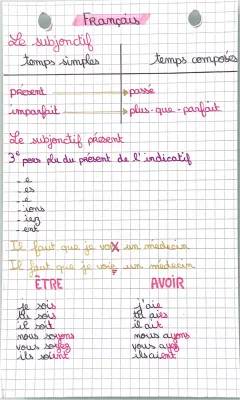 Français
Le subjonctif
temps simples temps composés
présent passé
imparfait plus-que-parfait
Le subjonctif présent
3e pers plu du présent de l'indicatif
- e
- es
- e
- ions
- iez
- ent
Il faut que je voix un médecin
Il faut que je vois un médecin
ÊTRE AVOIR
je sois j'aie
tu sois tu aies
il soit il ait
nous soyons nous ayons
vous soyez vous ayez
ils soient ils aient